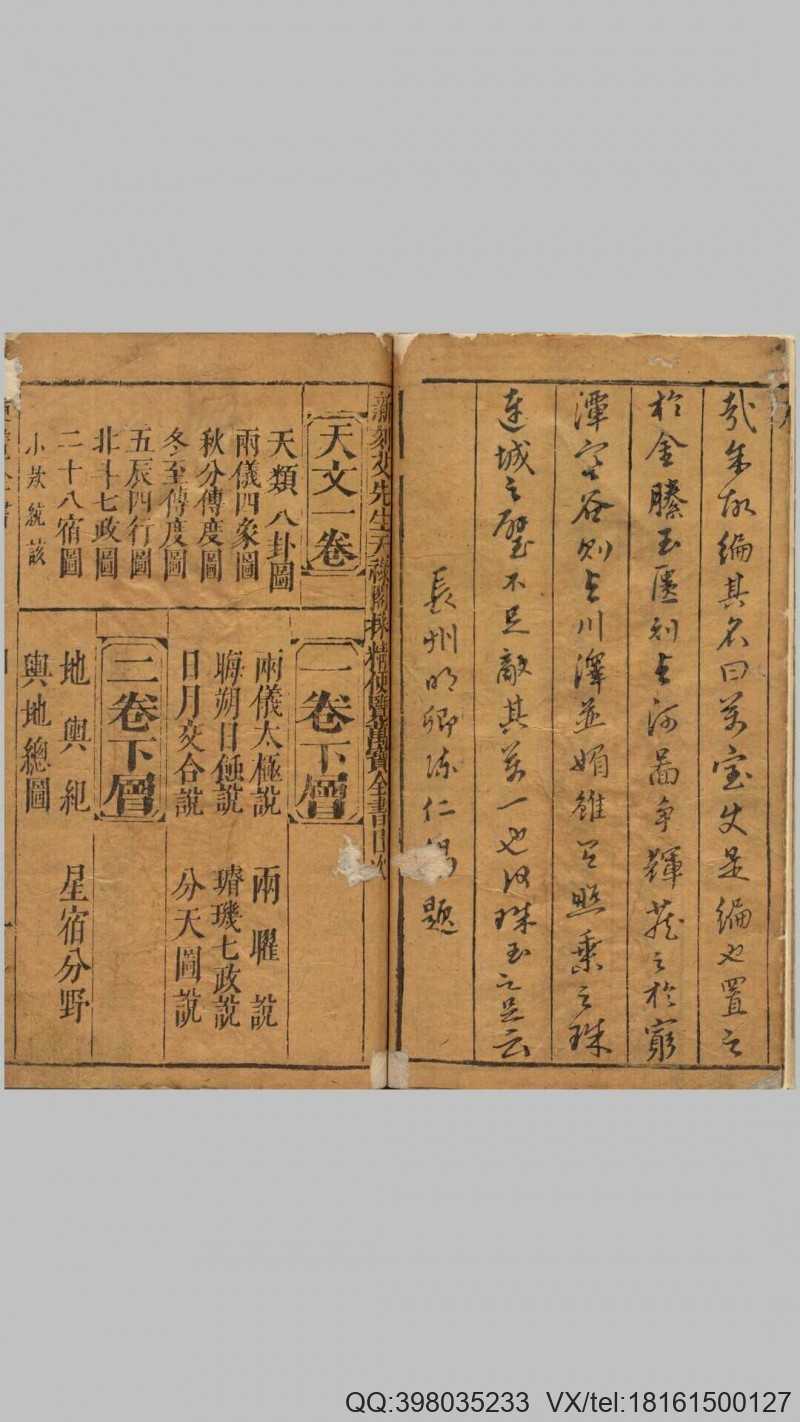 哉余故編其名曰萬宝夫是編也置之
於金縢玉匱則与河啚争輝蔵之於窮
潭空谷則与川澤並媚雖照乗之珠
連城之璧不足敵其萬一也以珠玉之足云
長州明卿陳仁題
新刻艾先生天祿閣採精便覽萬寶全書目次
天文一卷
天類八卦圖
兩儀四象圖
秋分傳度圖
冬至傳度圖
五辰四行圖
北斗七政圖
二十八宿圖
小欵統該
一卷下層
兩儀太極說 兩曜說
晦朔日蝕說 璿璣七政說
日月交合說 分天圖說
二卷下層
地輿紀 星宿分野
輿地總圖
QQ:398035233 VX/tel:18161500127